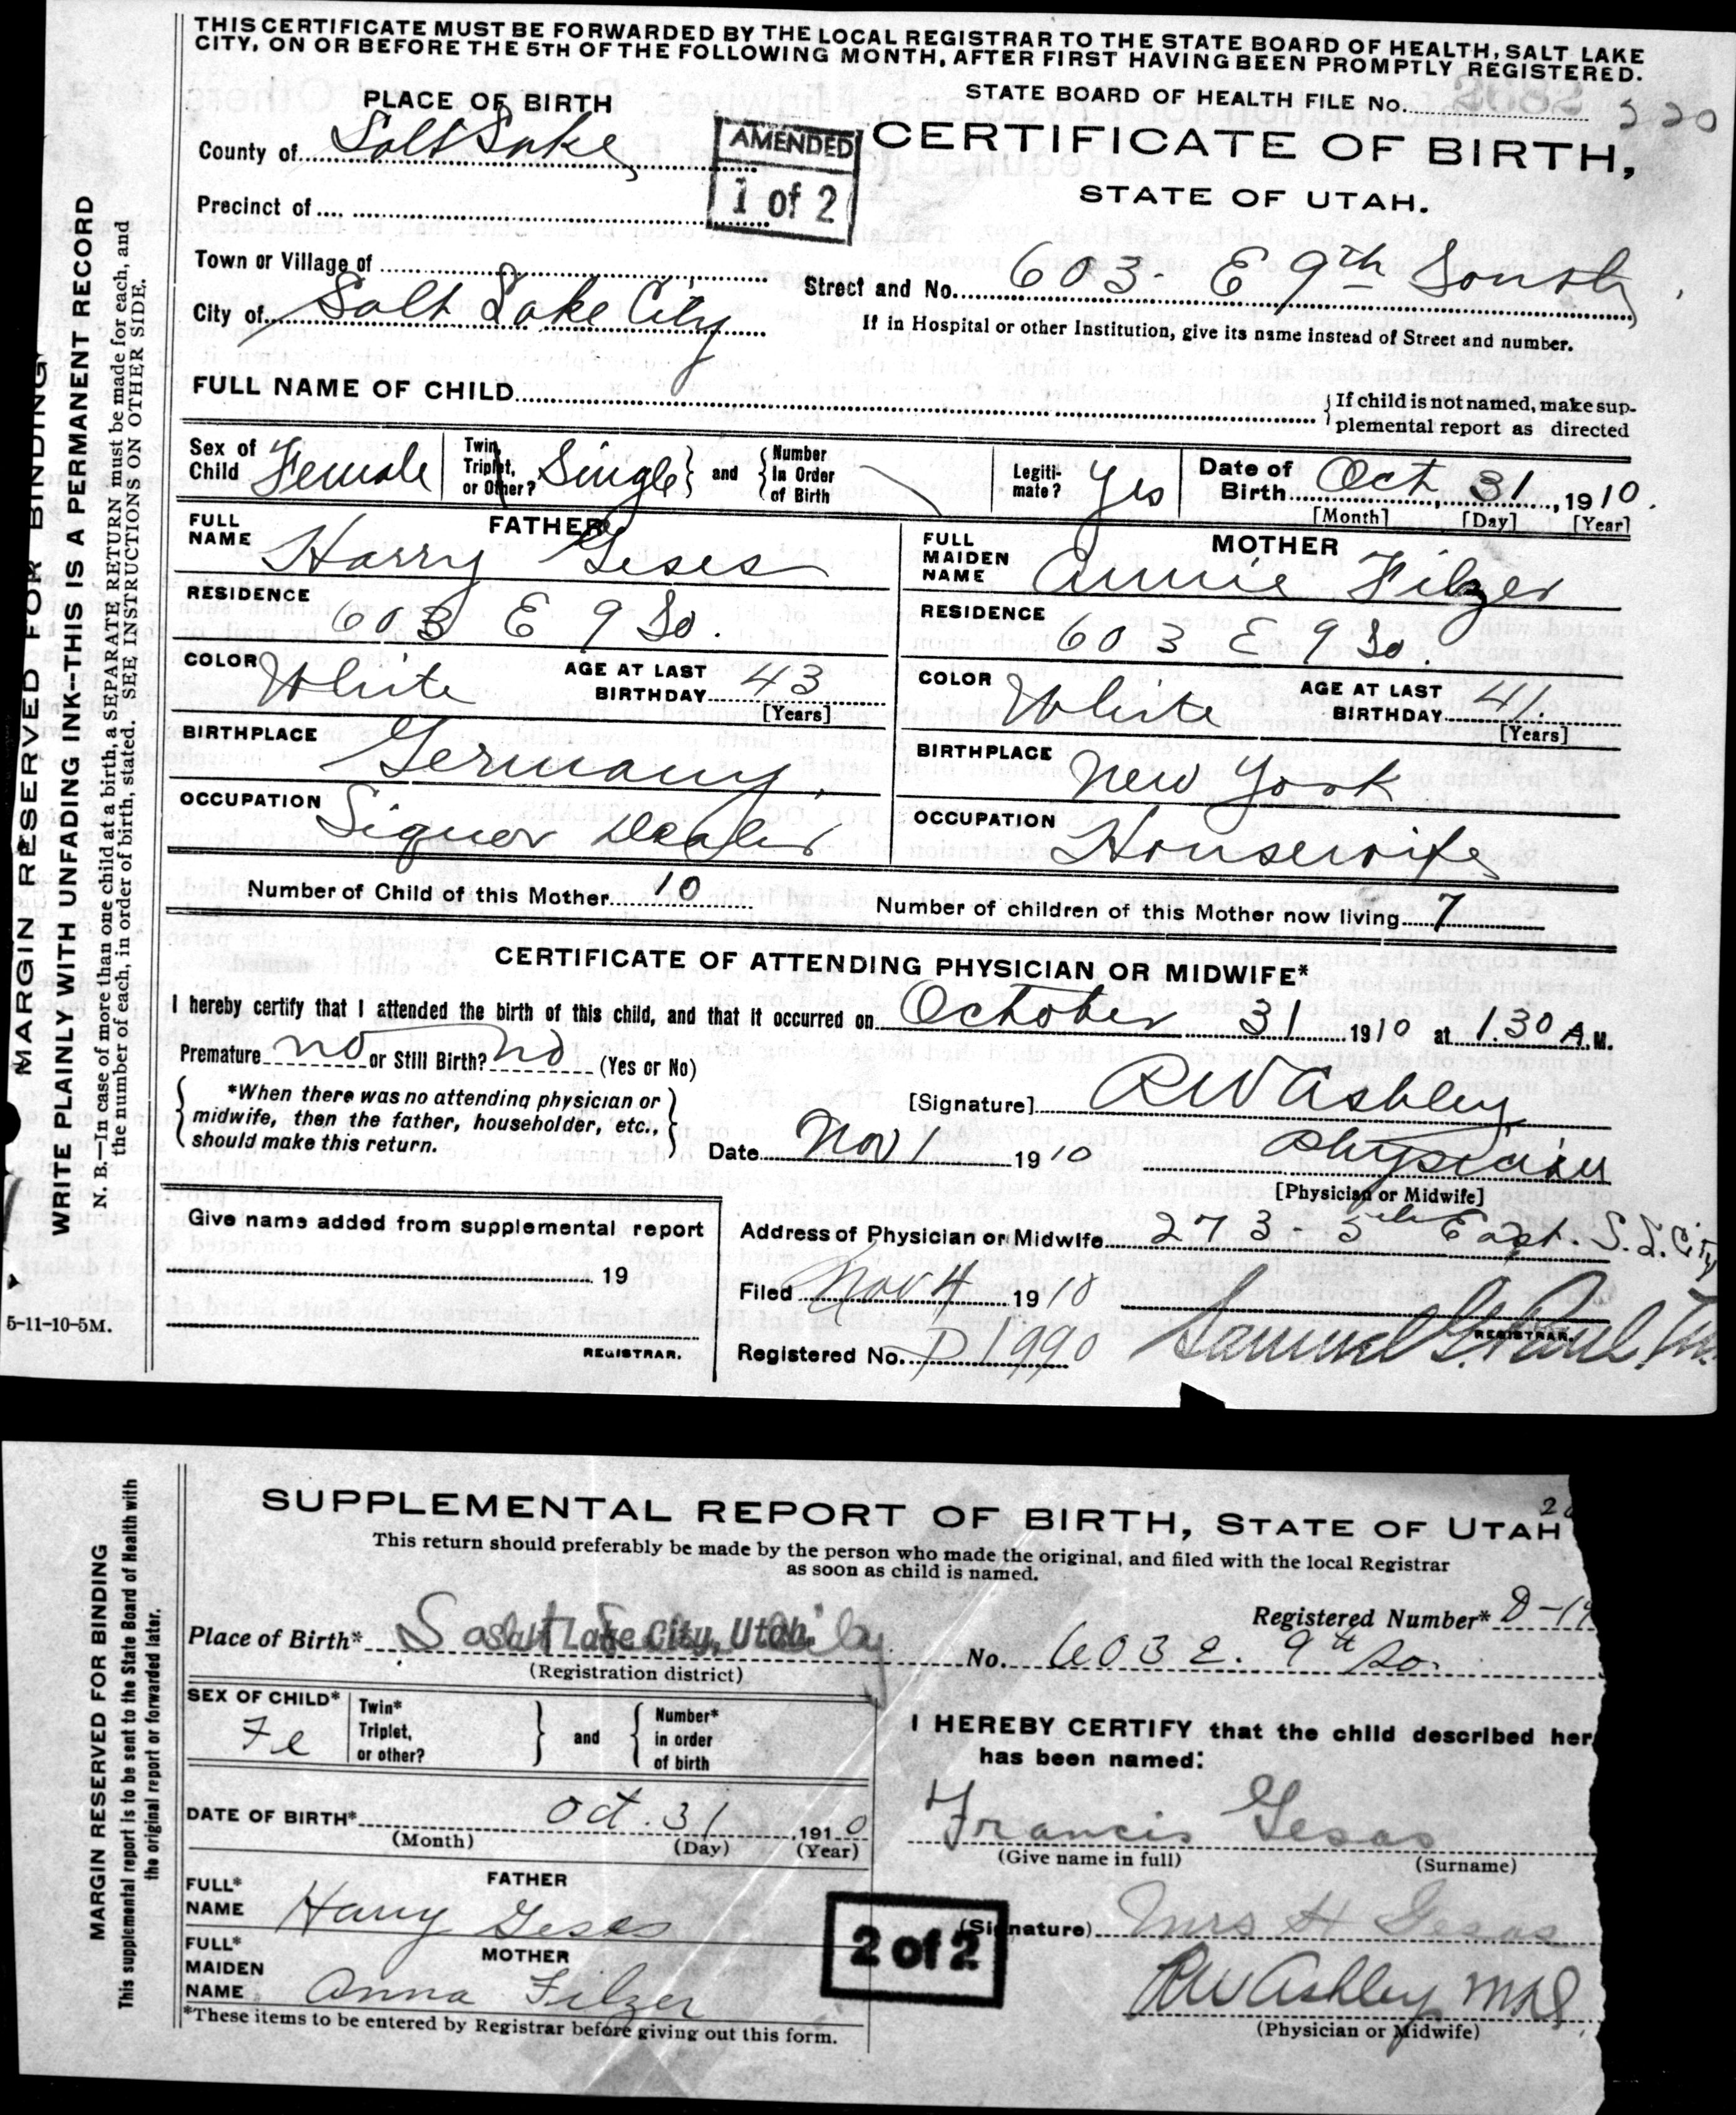 THIS CERTIFICATE MUST BE FORWARDED BY THE LOCAL REGISTRAR TO THE STATE BOARD OF HEALTH, SALT LAKE
CITY, ON OR BEFORE THE 5TH OF THE FOLLOWING MONTH, AFTER FIRST HAVING BEEN PROMPTLY REGISTERED.
STATE BOARD OF HEALTH FILE No. 220
PLACE OF BIRTH
AMENDED
1 of 2
CERTIFICATE OF BIRTH,
STATE OF UTAH.
County of Salt Lake
Precinct of
Town or Village of
Street and No. 603 - E 9th South
City of Salt Lake City
If in Hospital or other Institution, give its name instead of Street and number.
FULL NAME OF CHILD
If child is not named, make sup-
plemental report as directed
Sex of Child Female
Twin, Triplet, or Other? Single and Number In Order of Birth
Legiti-mate? Yes
Date of Birth Oct 31, 1910.
[Month] [Day] [Year]
FATHER
FULL NAME Harry Geses
RESIDENCE 603 E 9 So.
COLOR White AGE AT LAST BIRTHDAY 43
[Years]
BIRTHPLACE Germany
OCCUPATION Liquor Dealer
MOTHER
FULL MAIDEN NAME Annie Filzer
RESIDENCE 603 E 9 So.
COLOR White AGE AT LAST BIRTHDAY 41.
[Years]
BIRTHPLACE New York
OCCUPATION Housewife
Number of Child of this Mother 10 Number of children of this Mother now living 7
CERTIFICATE OF ATTENDING PHYSICIAN OR MIDWIFE*
I hereby certify that I attended the birth of this child, and that it occurred on October 31 1910 at 1.30 A.M.
Premature no or Still Birth? no (Yes or No)
*When there was no attending physician or
midwife, then the father, householder, etc.,
should make this return.
[Signature] RW Ashley
Date Nov 1 1910 Physician
[Physician or Midwife]
Give name added from supplemental report
19
REGISTRAR.
Address of Physician or Midwife 273 - 5th East. S.L. City
Filed Nov 4 1910
REGISTRAR.
Registered No. D1990 Samuel G. Paul
MARGIN RESERVED FOR BINDING
WRITE PLAINLY WITH UNFADING INK--THIS IS A PERMANENT RECORD
N. B.—In case of more than one child at a birth, a SEPARATE RETURN must be made for each, and
the number of each, in order of birth, stated. SEE INSTRUCTIONS ON OTHER SIDE.
5-11-10-5M.
SUPPLEMENTAL REPORT OF BIRTH, STATE OF UTAH
This return should preferably be made by the person who made the original, and filed with the local Registrar
as soon as child is named.
Registered Number* D-19
Place of Birth* Salt Lake City, Utah. No. 603 E. 9th So.
(Registration district)
SEX OF CHILD* Fe
Twin* Triplet, or other? and Number* in order of birth
DATE OF BIRTH* Oct. 31, 1910
(Month) (Day) (Year)
FATHER
FULL* NAME Harry Geses
MOTHER
FULL* MAIDEN NAME Anna Filzer
*These items to be entered by Registrar before giving out this form.
I HEREBY CERTIFY that the child described her
has been named:
Francis Gesas
(Give name in full) (Surname)
2 of 2
(Signature) Mrs H Gesas
RW Ashley MD
(Physician or Midwife)
MARGIN RESERVED FOR BINDING
This supplemental report is to be sent to the State Board of Health with
the original report or forwarded later.